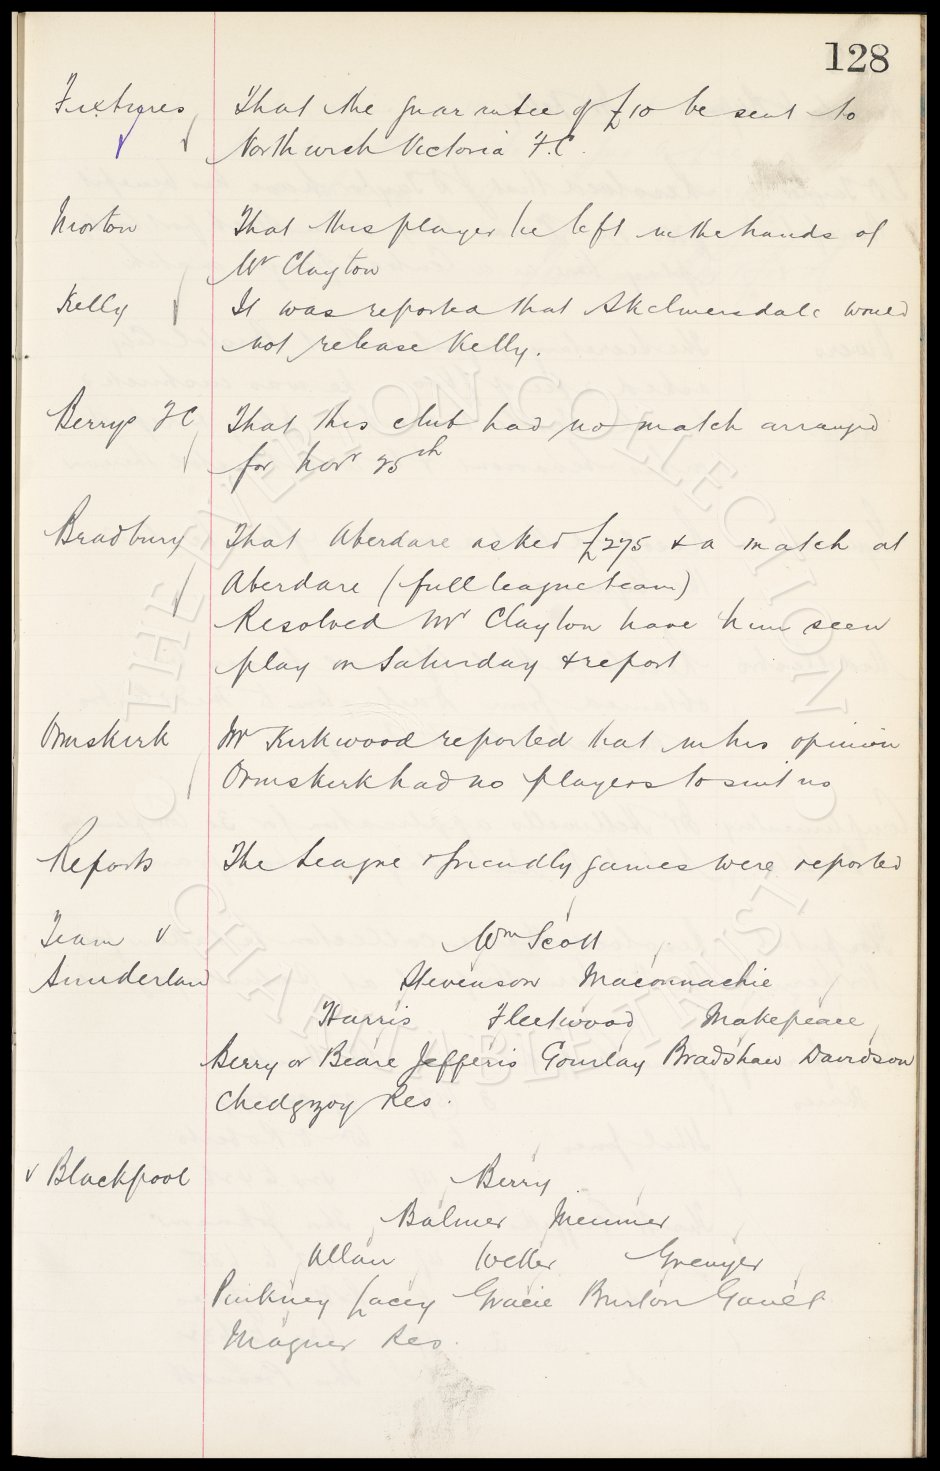 128
Fixtures That the guarantee of £10 be sent to
Northwich Victoria F.C.
Morton That this player be left in the hands of
Mr Clayton
Kelly It was reported that Skelmersdale would
not release Kelly.
Berrys FC That this club had no match arranged
for Novr 25th
Bradbury That Aberdare asked £275 & a match at
Aberdare (full league team)
Resolved Mr Clayton have him seen
play on Saturday & report
Ormskirk Mr Kirkwood reported that in his opinion
Ormskirk had no players to suit us
Reports The League & friendly games were reported
Team v Wm Scott
Sunderland Stevenson Maconnachie
Harris Fleetwood Makepeace
Berry or Beare Jefferis Gourlay Bradshaw Davidson
Chedgzoy Res.
v Blackpool Berry
Balmer Meunier
Allan Weller Grenyer
Pinkney Lacey Gracie Burton Gault
Magner Res.
THE EVERTON COLLECTION
CHARITABLE TRUST